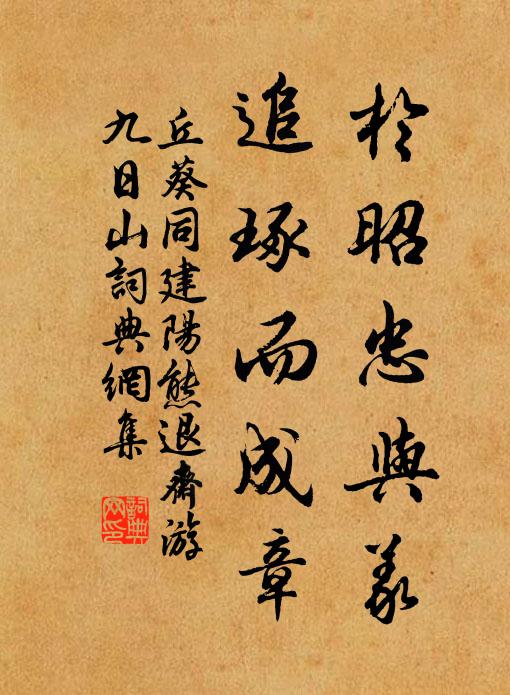 於昭忠與義
追琢而成章
丘葵同建陽熊退齋游
九日山詞典網集
詞典网印